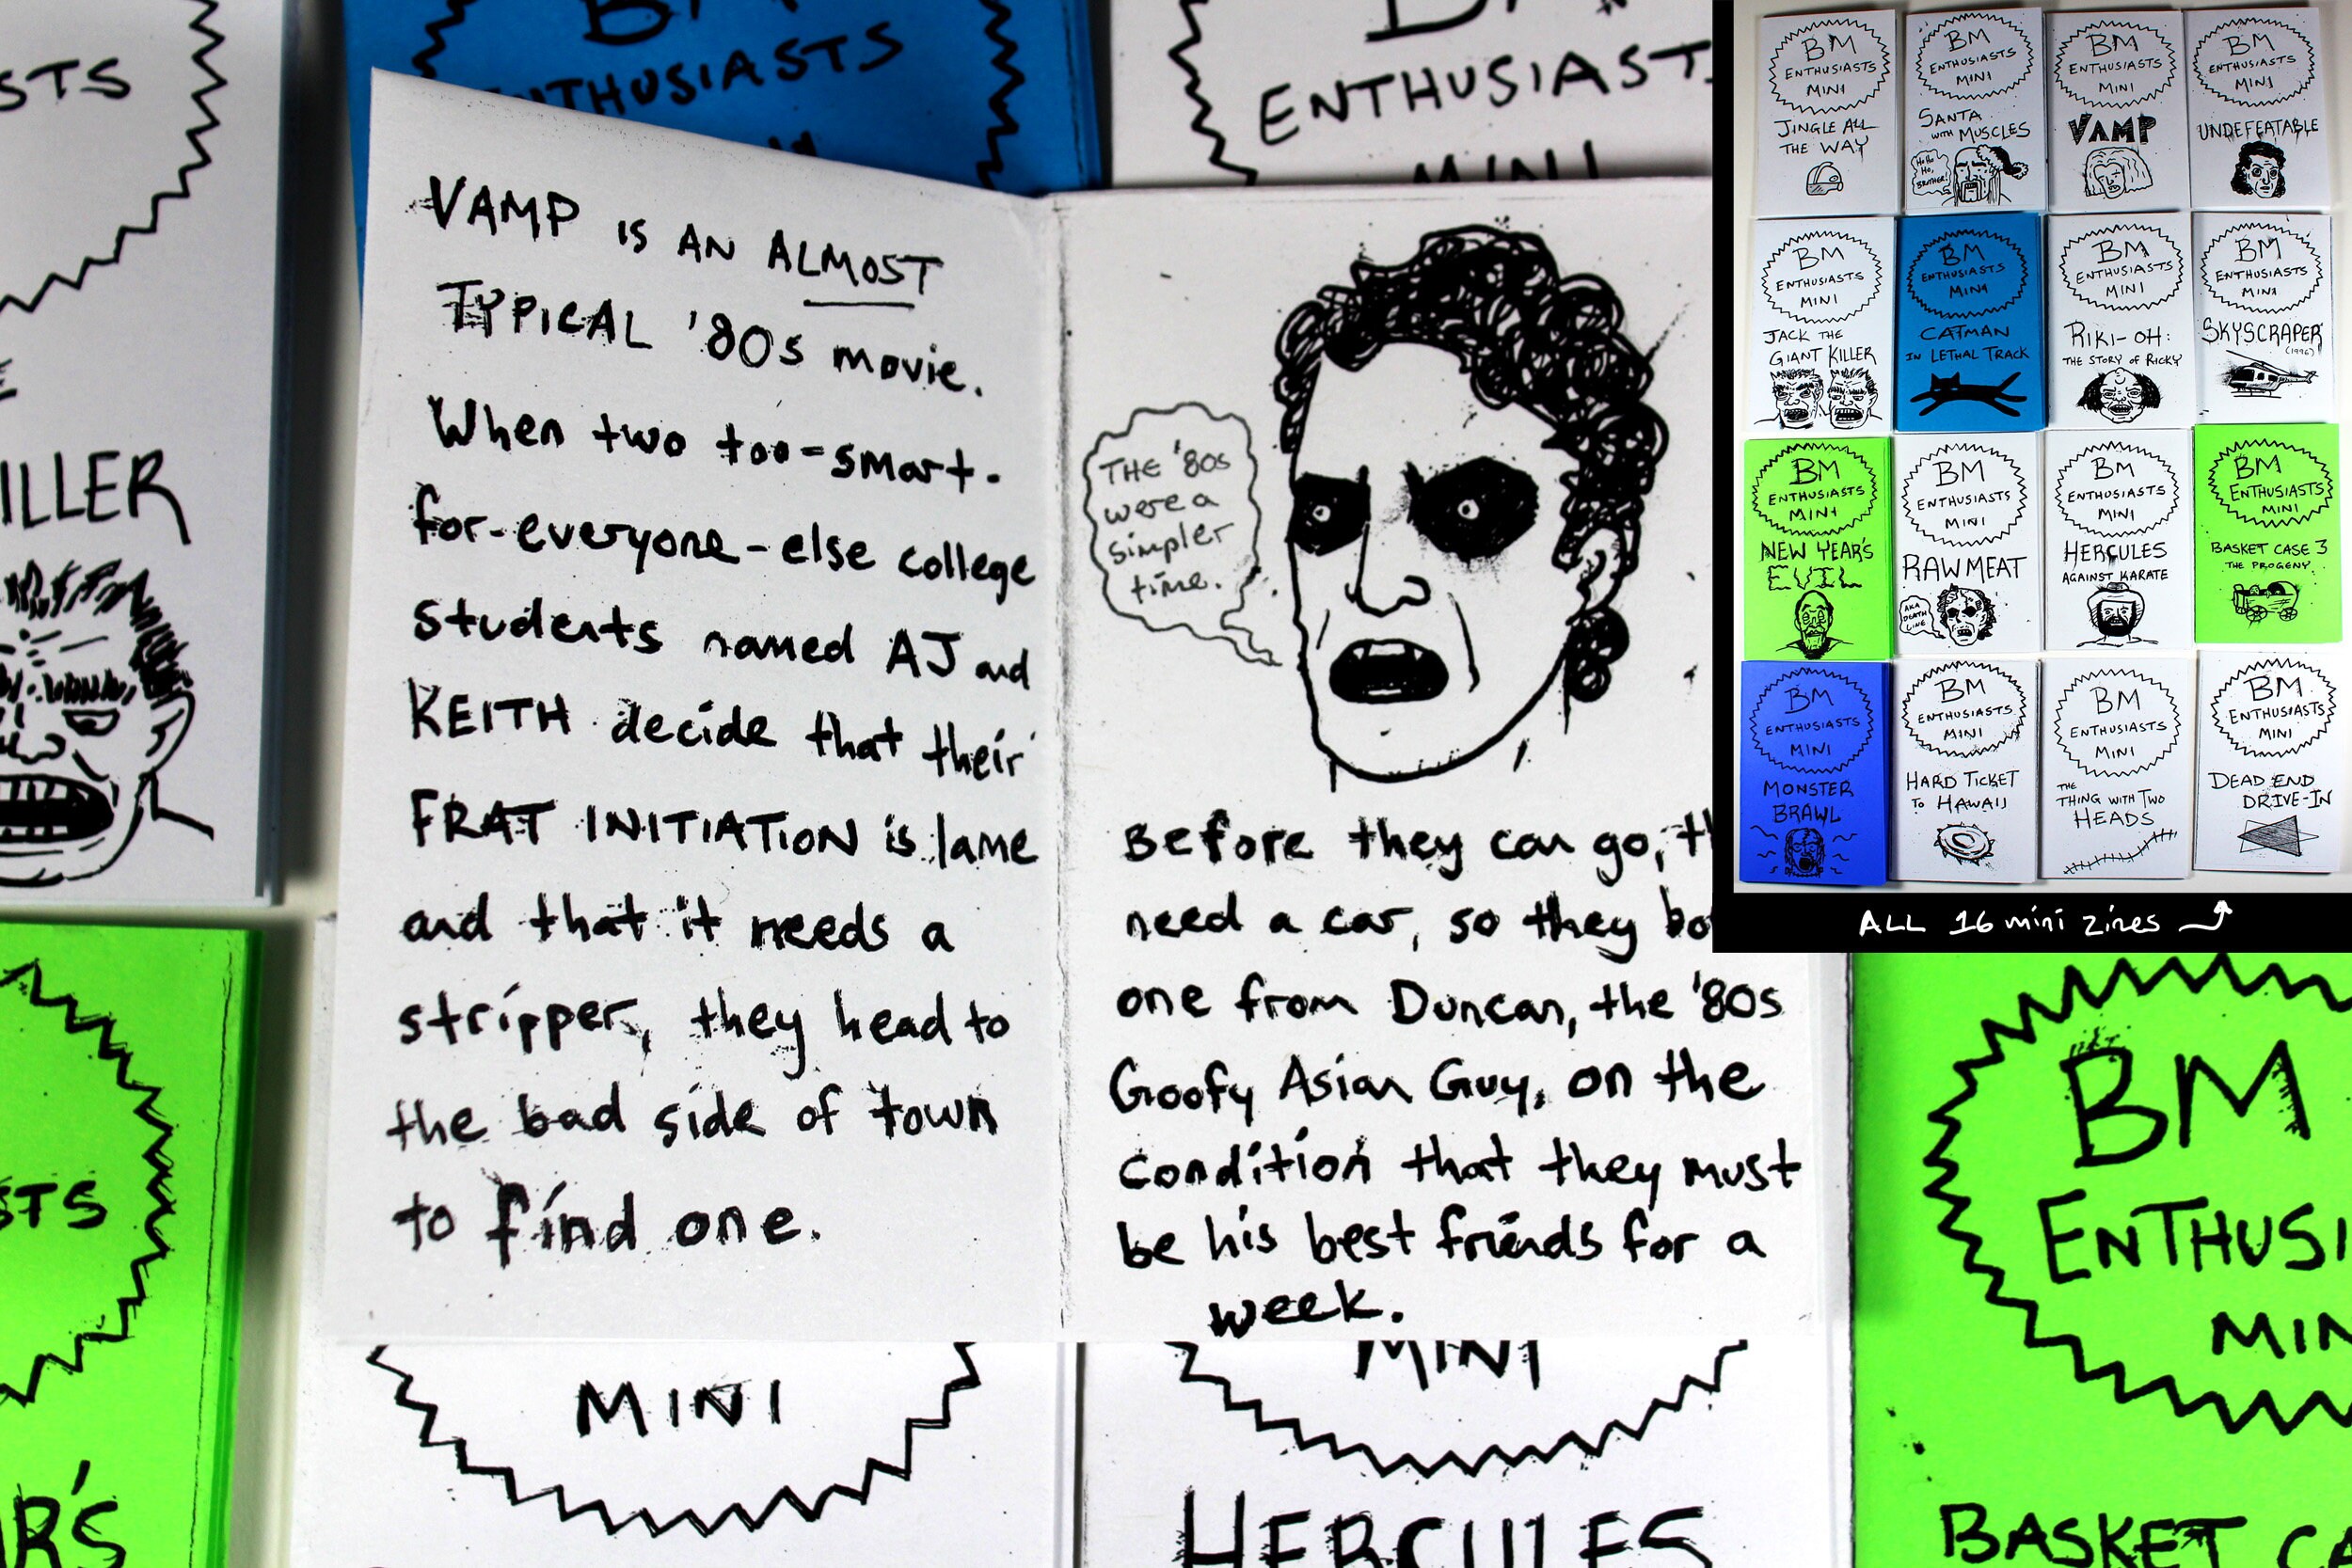 VAMP is AN ALMOST
TYPICAL '80s movie.
When two too-smart-
for-everyone-else college
students named AJ and
KEITH decide that their
FRAT INITIATION is lame
and that it needs a
stripper, they head to
the bad side of town
to find one.
THE '80s
were a
simpler
time.
Before they can go, th
need a car, so they bo
one from Duncan, the '80s
Goofy Asian Guy, on the
condition that they must
be his best friends for a
week.
STS
ILLER
ENTHUSIASTS
ENTHUSIAST
MINI
STS
R'S
MINI
MINI
HERCULES
BM
ENTHUSI
MIN
BASKET C
BM
ENTHUSIASTS
MINI
JINGLE ALL
THE WAY
BM
ENTHUSIASTS
MINI
SANTA
with MUSCLES
Ho Ho
Ho,
BROTHER!
BM
ENTHUSIASTS
MINI
VAMP
BM
ENTHUSIASTS
MINI
UNDEFEATABLE
BM
ENTHUSIASTS
MINI
JACK THE
GIANT KILLER
BM
ENTHUSIASTS
MINI
CATMAN
IN LETHAL TRACK
BM
ENTHUSIASTS
MINI
RIKI-OH:
THE STORY OF RICKY
BM
ENTHUSIASTS
MINI
SKYSCRAPER
(1996)
BM
ENTHUSIASTS
MINI
NEW YEAR'S
EVIL
BM
ENTHUSIASTS
MINI
RAW MEAT
AKA
DEATH
LINE
BM
ENTHUSIASTS
MINI
HERCULES
AGAINST KARATE
BM
ENTHUSIASTS
MINI
BASKET CASE 3
THE PROGENY
BM
ENTHUSIASTS
MINI
MONSTER
BRAWL
BM
ENTHUSIASTS
MINI
HARD TICKET
to HAWAII
BM
ENTHUSIASTS
MINI
THE
THING WITH TWO
HEADS
BM
ENTHUSIASTS
MINI
DEAD END
DRIVE-IN
ALL 16 mini zines